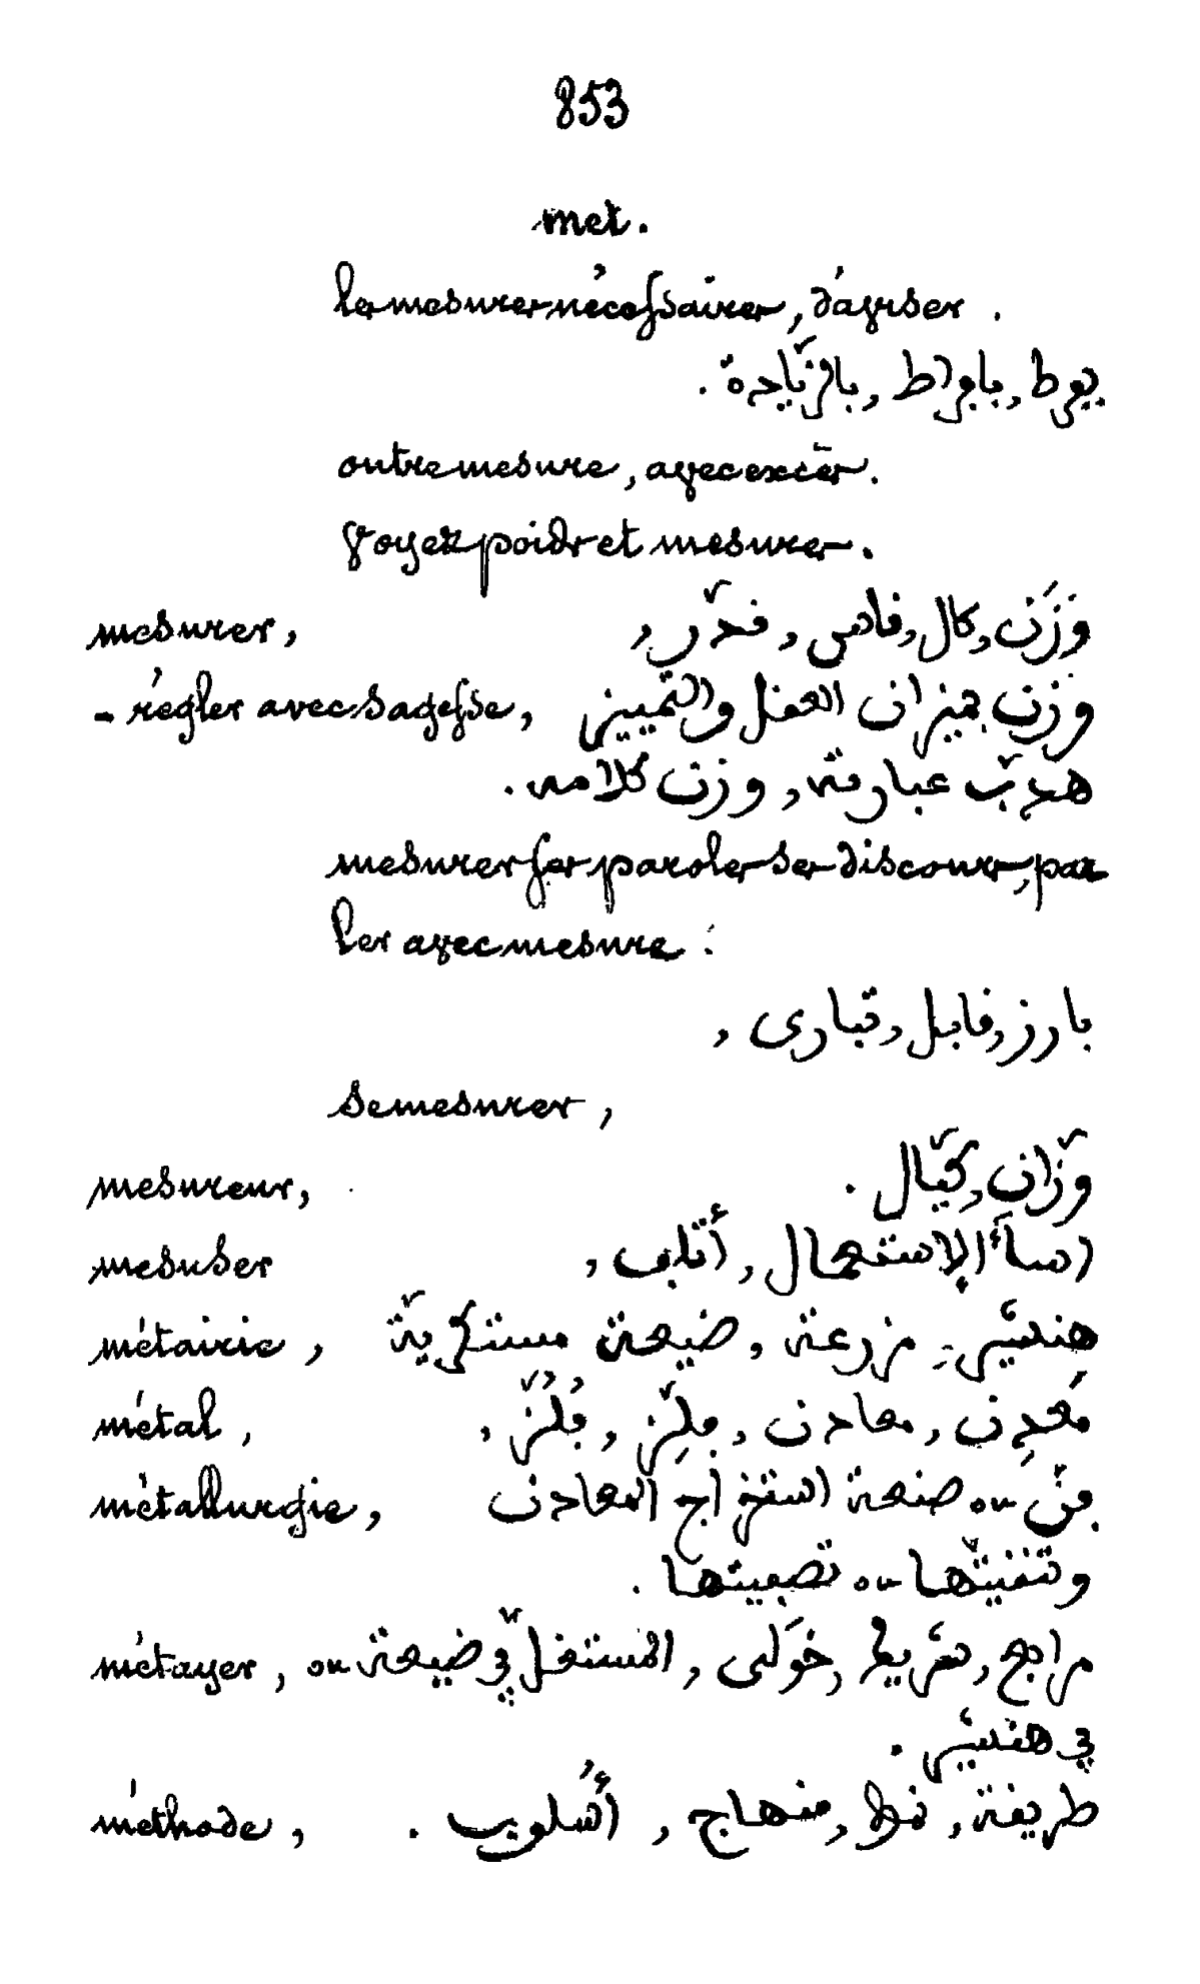 853
met.
les mesures nécessaires, d'aviser.
بفرط, بافراط, بالزّيادة.
outre mesure, avec excès.
voyez poids et mesures.
mesurer, وَزَن, كال, قاس, قدّر,
- régler avec sagesse, وزن بميزان العقل والتمييز
هذّب عبارته, وزن كلامه.
mesurer ses paroles ses discours, par
ler avec mesure:
بارز, قابل, تبارى,
se mesurer,
mesureur, وزّان, كيّال.
mesuser اساأ الإستعمال, أتلف,
métairie, هنشير, مزرعة, ضيعة مستكريّة
métal, مَعدِن, معادن, فِلِزّ, فُلُزّ,
métallurgie, فنّ ou صنعة استخراج المعادن
وتنقيتها ou تصفيتها.
métayer, مرابع, شريك, خوَلى, المستغلّ في ضيعة ou
في هنشير.
méthode, طريقة, نمط, منهاج, أُسلوب.